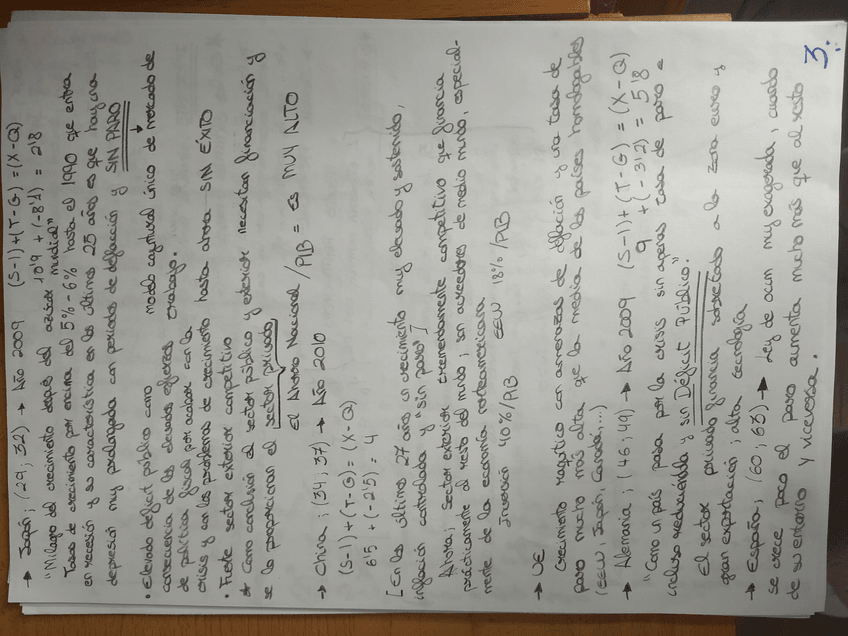 → Japón ; (29 ; 32) → Año 2009 (S-I) + (T-G) = (X-Q)
"Milagro del crecimiento después del azúcar mundial" 10'9 + (-8'1) = 2'8
Tasas de crecimiento por encima del 5% - 6% hasta el 1990 que entra
en recesión y su característica en los últimos 25 años es que hay una
depresión muy prolongada con periodos de deflacción y SIN PARO
• Elevado deficit público como modelo capitural único de mercado de
consecuencia de los elevados esfuerzos trabajo.
de política fiscal por acabar con la
crisis y con los problemas de crecimiento hasta ahora SIN ÉXITO
• Fuerte sector exterior competitivo
* Como conclusión el sector público y exterior necesitan financiación y
se la proporcionan el sector privado
El Ahorro Nacional /PIB = es MUY ALTO
→ China ; (34 ; 37) → Año 2010
(S-I) + (T-G) = (X-Q)
6'5 + (-2'5) = 4
[ En los últimos 27 años un crecimiento muy elevado y sostenido,
inflación controlada y "sin paro" ]
Ahora ; sector exterior extremadamente competitivo que financia
prácticamente al resto del mundo ; son acreedores de medio mundo, especial-
mente de la economía norteamericana
Inversión 40%/PIB EEUU 18%/PIB
→ UE
Crecimiento raquítico con amenazas de deflación y una tasa de
paro mucho más alta que la media de los países homologables
(EEUU, Japón, Canadá, ...)
→ Alemania ; (46 ; 49) → Año 2009 (S-I) + (T-G) = (X-Q)
9 + (-3'2) = 5'8
"Como un país pasa por la crisis sin apenas tasa de paro e
incluso reduciéndola y sin Déficit Público".
El sector privado financia sobretodo a la zona euro y
gran exportación ; alta tecnología
→ España ; (60 ; 63) → Ley de ocun muy exagerada, cuando
se crece poco el paro aumenta mucho más que al resto
de su entorno y viceversa.
3.